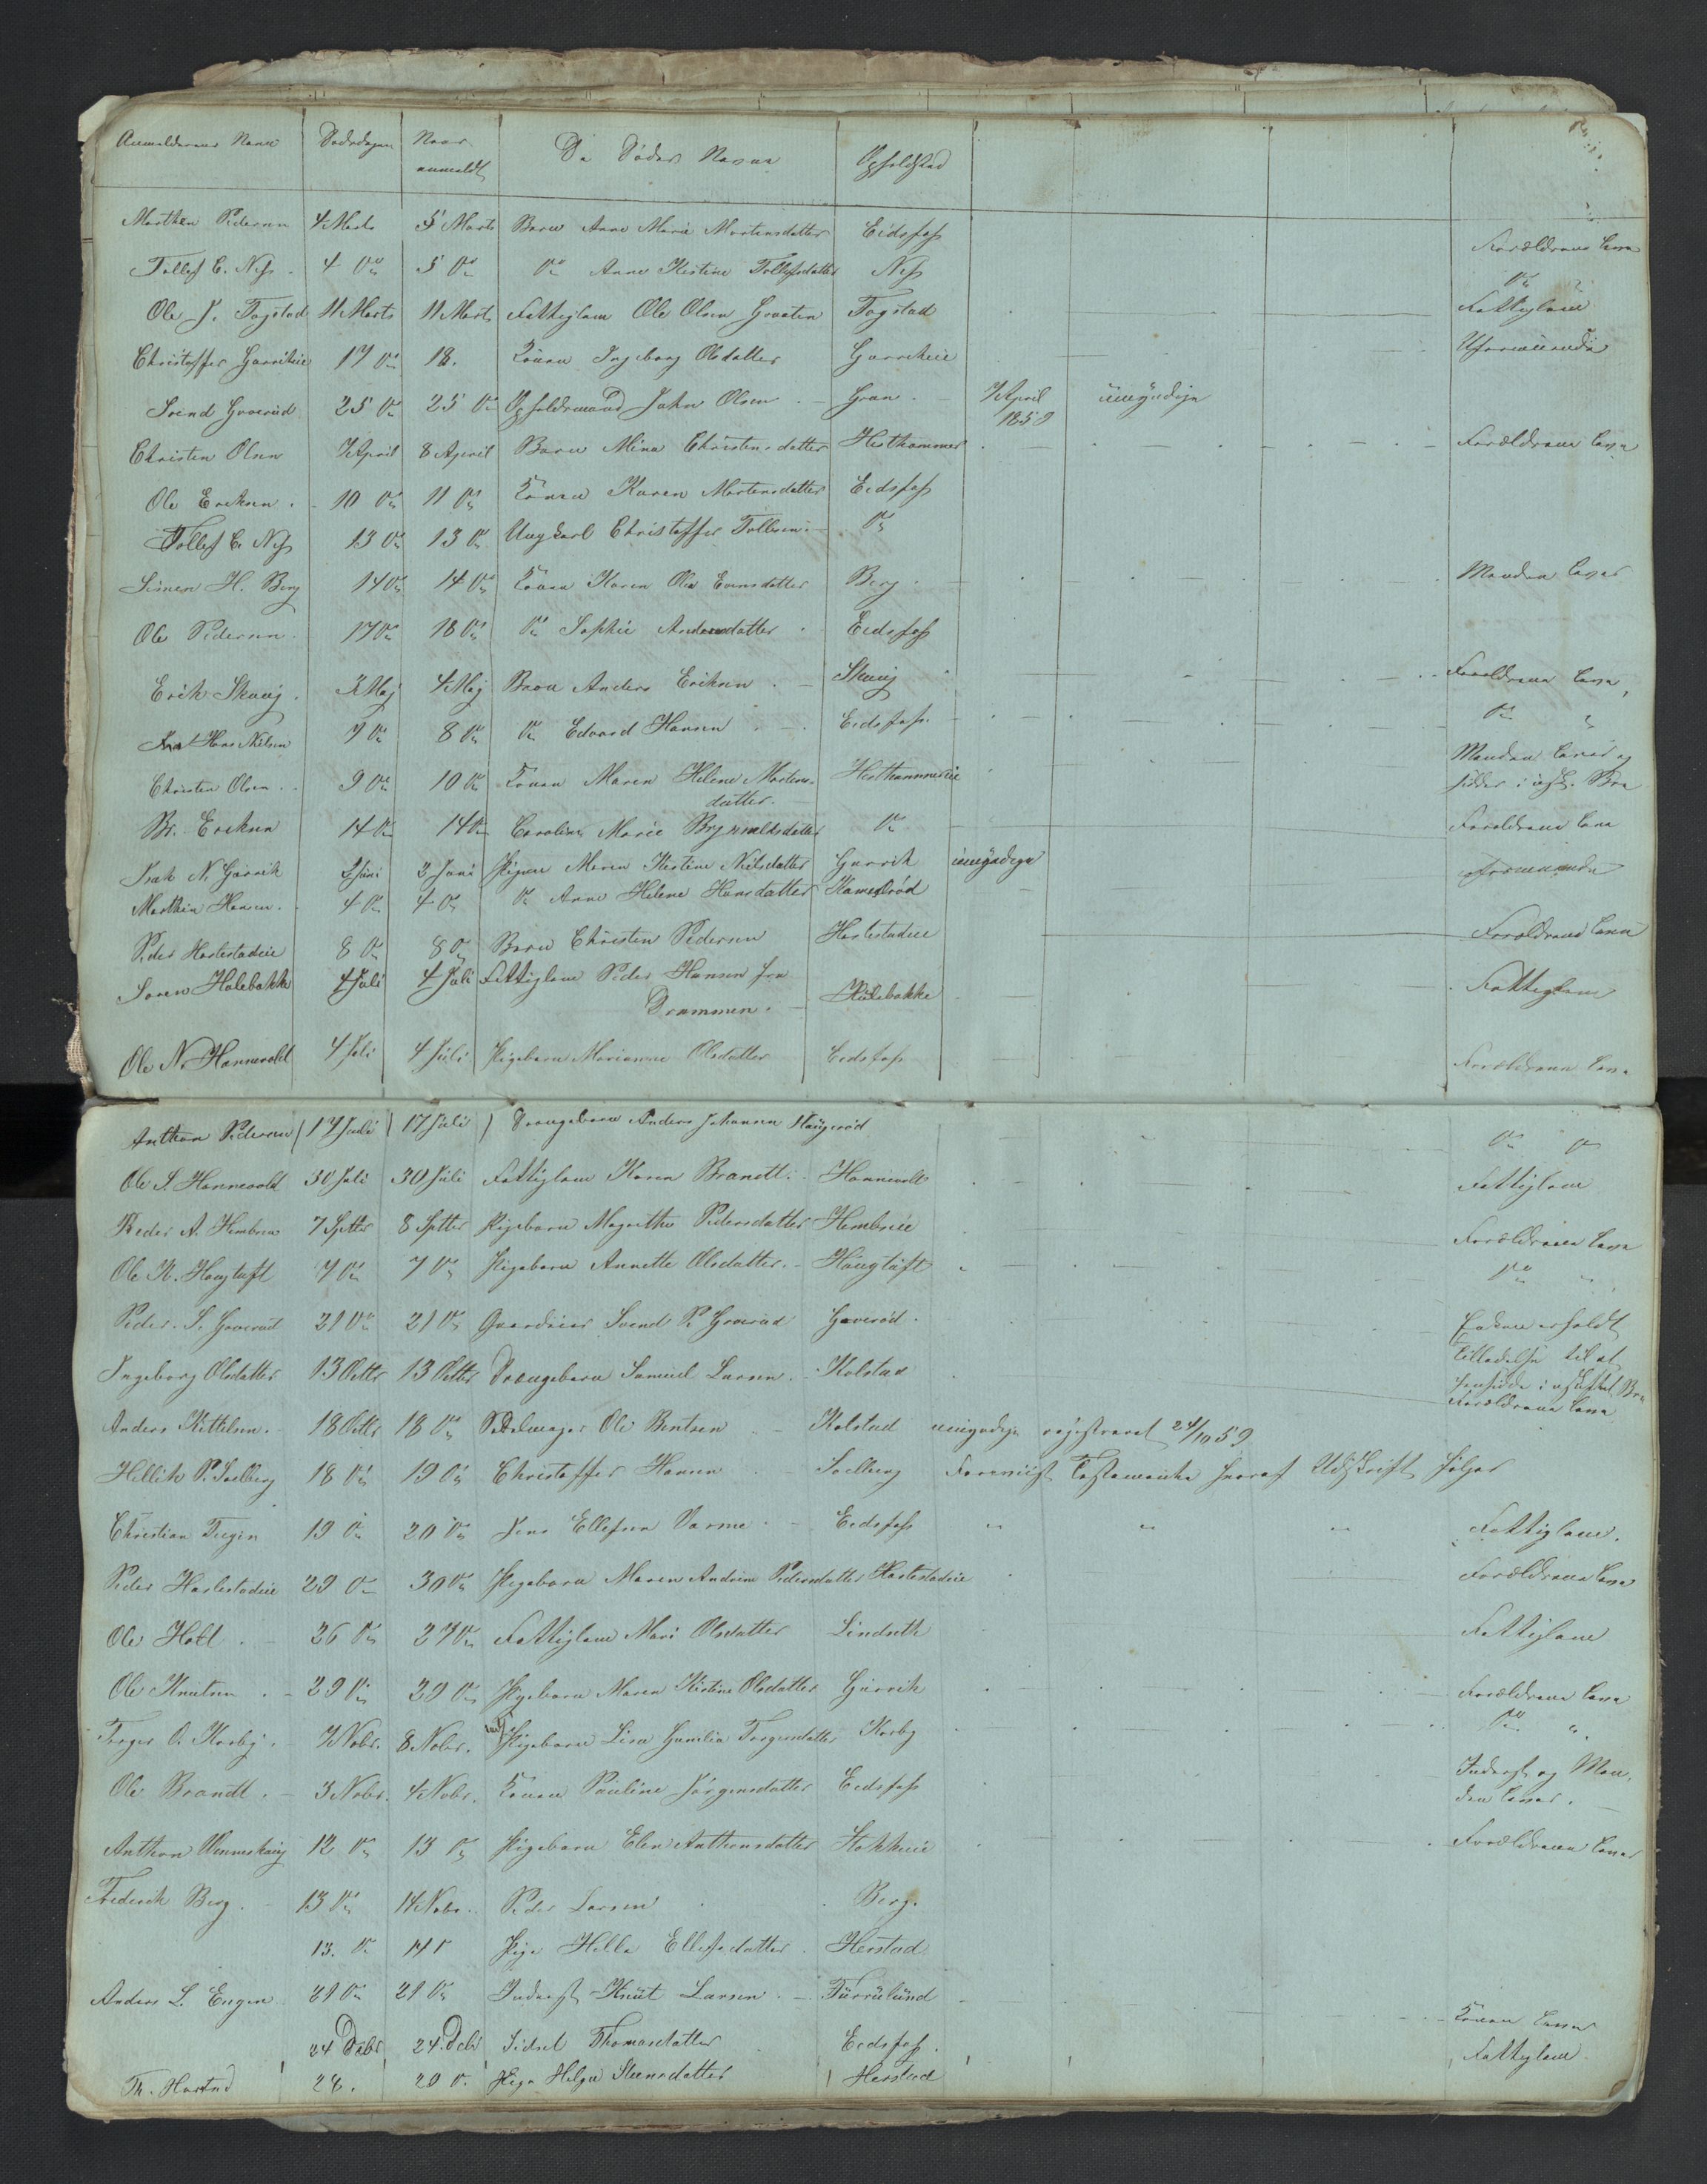 Anmelderens Navn Dødsdagen Naar anmeldt De Dødes Navne Opholdsted
Marthin Pedersen 4 Marts 5 Marts Barn Anne Marie Mortensdatter Eidsfoss Forældrene leve
Tollef C. Ness 4 Do 5 Do Do Anne Kirstine Tollefsdatter Ness Do
Ole J. Fogstad 11 Marts 11 Marts Fattiglem Ole Olsen Fogstad Fattiglem
Christoffer 17 Do 18. Konen Ingeborg Olsdatter Uformuende
Svend Groverud 25 Do 25 Do Opholdsmand John Olsen Gran 7 April 1859 umyndige
Christen Olsen 7 April 8 April Barn Mina Christensdatter Hesthammer Forældrene leve
Ole Eriksen 10 Do 11 Do Konen Karen Mortensdatter Eidsfoss
Tollef C. Ness 13 Do 13 Do Ungkarl Christoffer Tollefsen Do
Simen H. Berg 14 Do 14 Do Konen Karen Olea Evensdatter Berg Manden lever
Ole Pedersen 17 Do 18 Do Do Sophie Andersdatter Eidsfoss
Erik Skaug 3 Maj 4 Maj Barn Anders Eriksen Skaug Forældrene leve
Hans Nilsen 7 Do 8 Do Do Edvard Hansen Eidsfoss Do "
Christen Olsen 9 Do 10 Do Konen Maren Helene Mortens- Hesthammereie Manden lever og
datter sidder i uskf. Boe
Br. Eriksen 14 Do 14 Do Caroline Marie Brynildsdatter Do Forældrene leve
Isak N. Garvik 2 Juni 2 Juni Pigen Maren Kirstine Nilsdatter Garvik umyndige
Marthin Hansen 4 Do 4 Do Do Anne Helene Hansdatter
Peder Harlestadeie 8 Do 8 Do Barn Christen Pedersen Harlestadeie Forældrene leve
Søren Holebakke 4 Juli 4 Juli Fattiglem Peder Hansen fra Holebakke Fattiglem
Drammen.
Ole N. Hannevold 4 Juli 4 Juli Pigebarn Marianne Olsdatter Eidsfoss Forældrene leve
Anthon Pedersen 17 Juli 17 Juli Drengebarn Anders Johansen Haugerød Do Do
Ole S. Hannevold 30 Juli 30 Juli Fattiglem Karen Brandt Hannevold Fattiglem
Peder A. 7 Septbr 8 Septbr Pigebarn Magrethe Pedersdatter Forældrene leve
Ole K. Haugtuft 7 Do 7 Do Pigebarn Annette Olsdatter Haugtuft Do "
Peder S. Groverud 21 Do 21 Do Gaardeier Svend P. Groverud Groverød Enken erholdt
Tilladelse til at
Ingeborg Olsdatter 13 Octbr 13 Octbr Drengebarn Samuel Larsen Kolstad hensidde i uskiftet Boe
Forældrene leve
Anders Kittilsen 18 Octbr 18 Do Ole Bentsen Kolstad umyndige registreret 24/10 59
Hellik P. Solberg 18 Do 19 Do Christoffer Hansen Solberg Testamente hvoraf Udskrift følger
Christian Teigen 19 Do 20 Do Jens Ellefsen Varme Eidsfoss " " " Fattiglem.
Peder Harlestadeie 29 Do 30 Do Pigebarn Maren Andrine Pedersdatter Harlestadeie Forældrene leve
Ole Holt 26 Do 27 Do Fattiglem Mari Olsdatter Lindseth Fattiglem
Ole Knutsen 29 Do 29 Do Pigebarn Maren Kirstine Olsdatter Garvik Forældrene leve
Torger O. Korby 7 Nobr. 8 Nobr. Pigebarn Lina Gunilia Torgersdatter Korby Do "
Ole Brandt 3 Nobr. 4 Nobr. Konen Pauline Jørgensdatter Eidsfoss Inderst og Man-
den lever.
Anthon 12 Do 13 Do Pigebarn Elen Anthonsdatter Forældrene lever
Frederik Berg 13 Do 14 Nobr. Peder Larsen Berg.
13. Do 14 Do Pige Helle Ellefsdatter Herstad
Anders L. Engen 21 Do 21 Do Inderst Knut Larsen Furrulund Konen lever
24 Debr 24. Debr Sidsel Thomasdatter Eidsfoss. Fattiglem
Th. Harstad 28. 29 Do Pige Helge Steensdatter Herstad